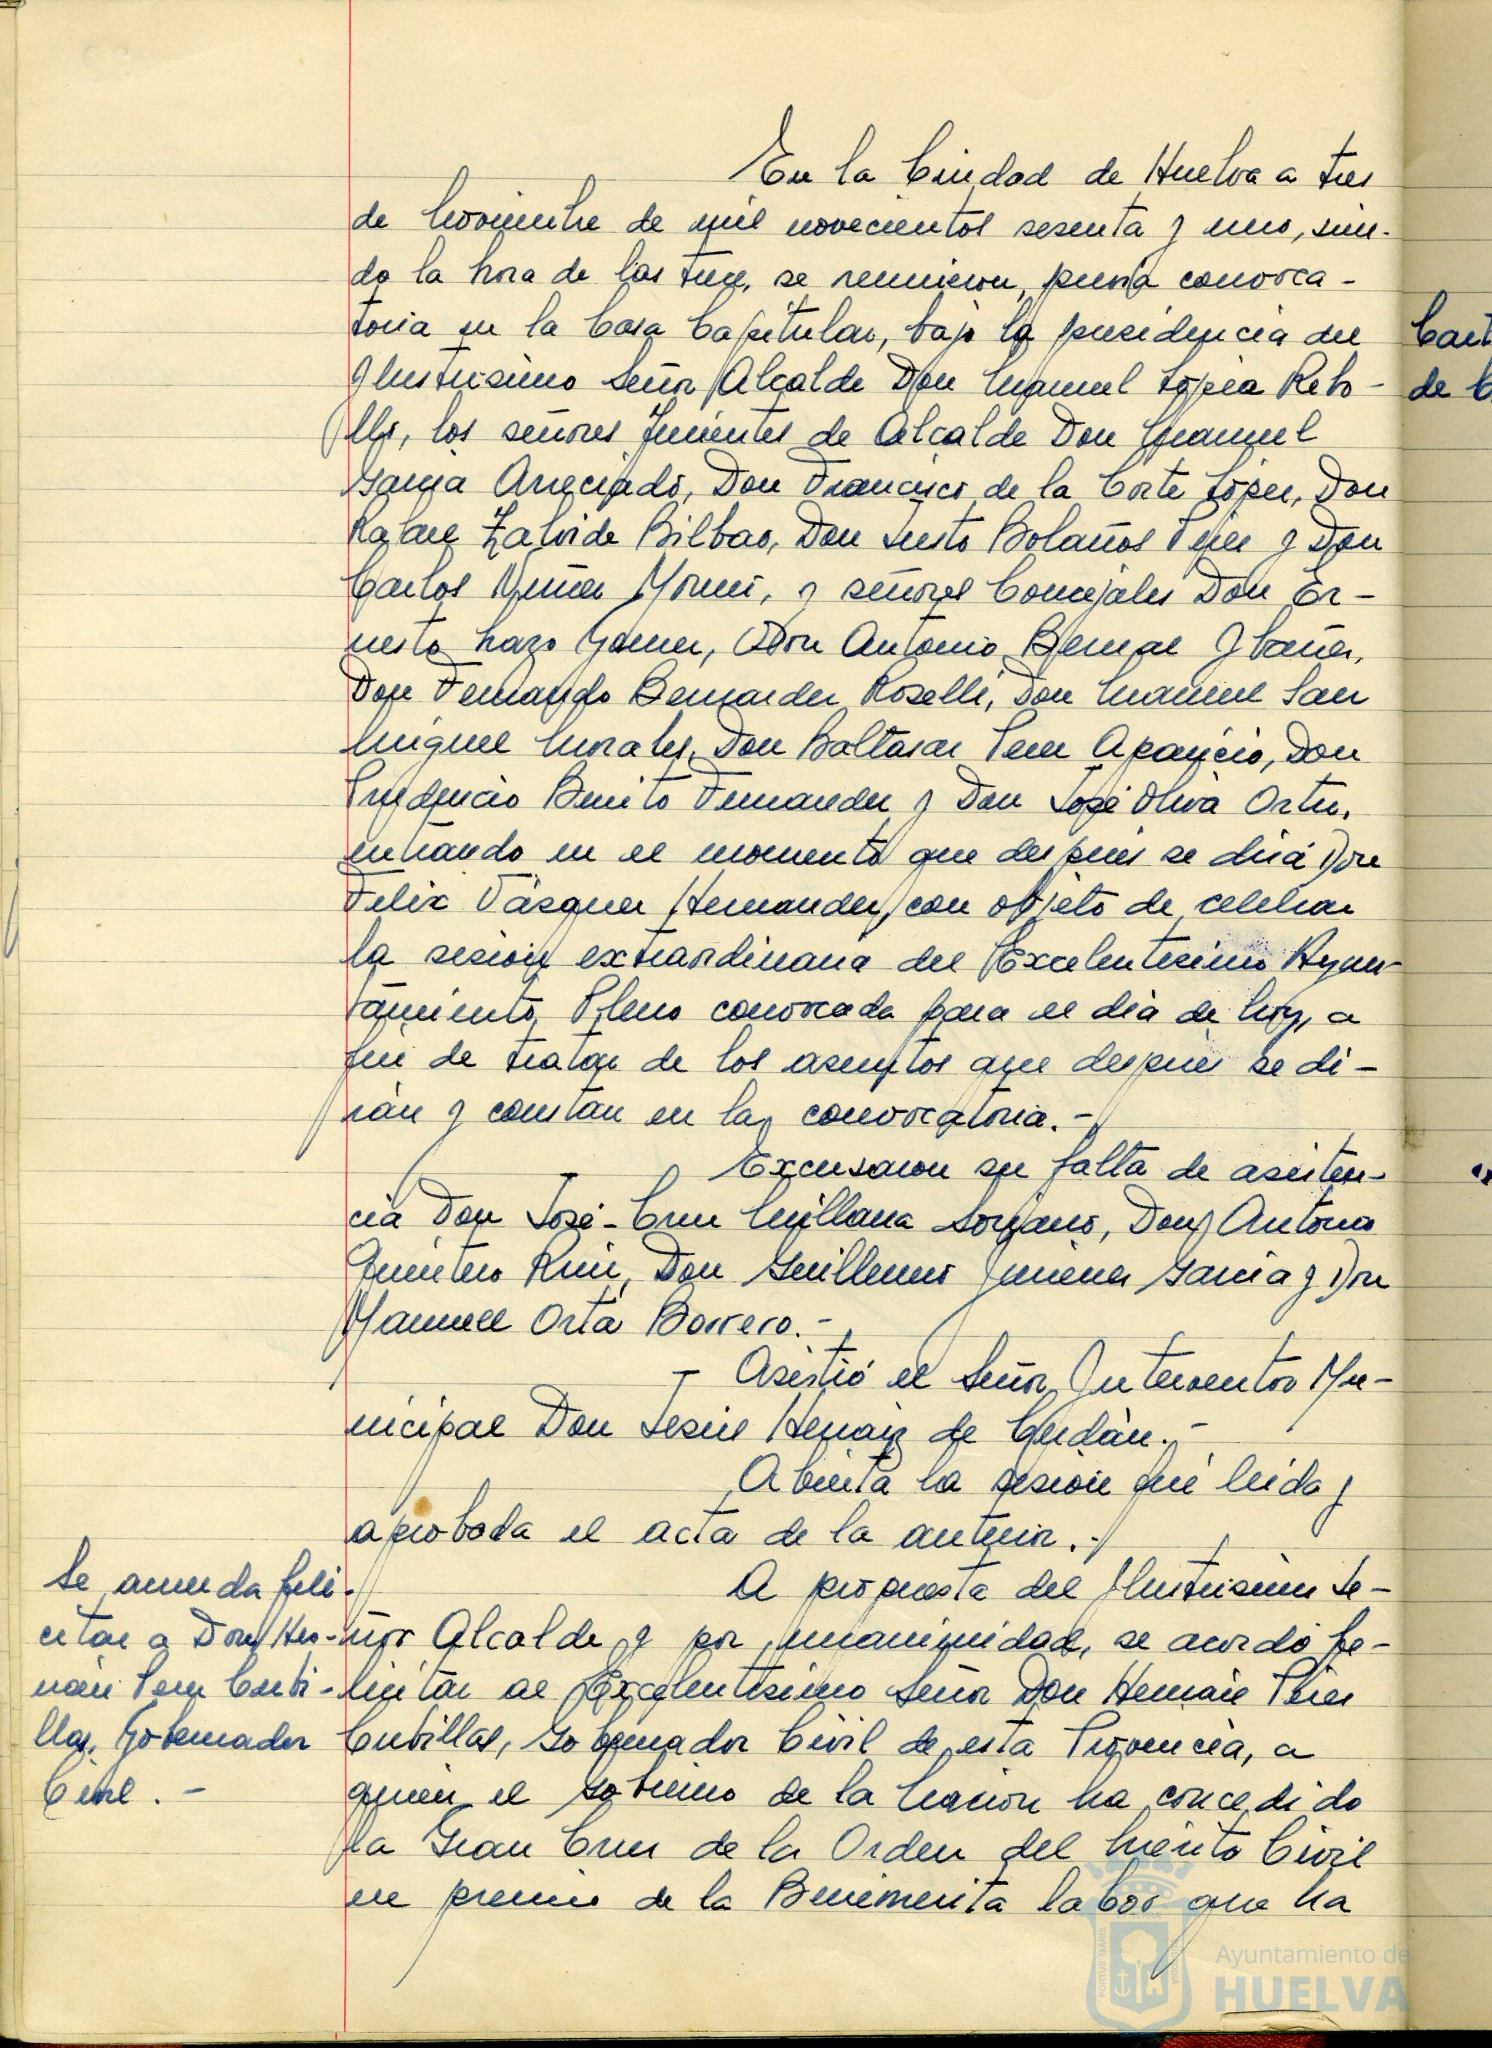 En la Ciudad de Huelva a tres
de Noviembre de mil novecientos sesenta y uno, sien-
do la hora de las trece, se reunieron, previa convoca-
toria en la Casa Capitular, bajo la presidencia del
Ilustrisimo Señor Alcalde Don Manuel López Rebo-
llo, los señores Tenientes de Alcalde Don Manuel
Garcia Arreciado, Don Francisco de la Corte López, Don
Rafael Zalvide Bilbao, Don Justo Bolaños Pérez y Don
Carlos Núñez Moreno, y señores Concejales Don Er-
nesto Lazo Gomez, Don Antonio Bernal Ybañez,
Don Fernando Bernardez Roselli, Don Manuel San
Miguel Morales, Don Baltasar Perez Aparicio, Don
Prudencio Benito Fernandez y Don José Oliva Ortiz,
entrando en el momento que despues se dirá Don
Felix Vásquez Hernandez, con objeto de celebrar
la sesión extraordinaria del Excelentisimo Ayun-
tamiento Pleno convocada para el dia de hoy, a
fin de tratar de los asuntos que despues se di-
rán y constan en la convocatoria.-
Excusaron su falta de asisten-
cia Don José-Cruz Millana Soriano, Don Antonio
Quintero Ruiz, Don Guillermo Jimenez Garcia y Don
Manuel Orta Borrero.-
Asistió el Señor Interventor Mu-
nicipal Don Jesús Hernaiz de Gudán.-
Abierta la sesión fué leida y
aprobada el acta de la anterior.-
A propuesta del Ilustrisimo Se-
ñor Alcalde y por unanimidad, se acordó fe-
licitar al Excelentisimo Señor Don Hernán Pérez
Cubillas, Gobernador Civil de esta Provincia, a
quien el Gobierno de la Nación ha concedido
la Gran Cruz de la Orden del Mérito Civil
en premio de la Benemerita labor que ha
Se acuerda feli-
citar a Don Her-
nán Perez Cubi-
llas, Gobernador
Civil.-
Ayuntamiento de
HUELVA